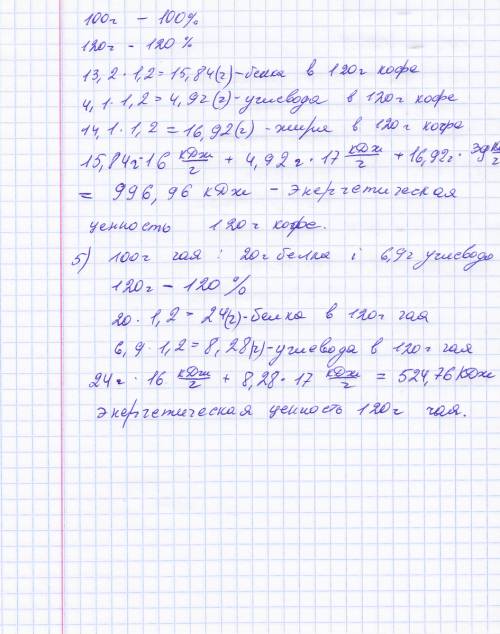 100г – 100%
120г – 120%
13,2 · 1,2 = 15,84(г) – белка в 120г кофе
4,1 · 1,2 = 4,92(г) – углевода в 120г кофе
14,1 · 1,2 = 16,92(г) – жира в 120г кофе
15,84г · 16 кДж/г + 4,92г · 17 кДж/г + 16,92г ·
= 996,96 кДж – энергетическая
ценность 120г кофе.
5) 100г чая : 20г белка и 6,9г углевода
120г – 120%
20 · 1,2 = 24(г) – белка в 120г чая
6,9 · 1,2 = 8,28(г) – углевода в 120г чая
24г · 16 кДж/г + 8,28 · 17 кДж/г = 524,76 кДж
энергетическая ценность 120г чая.